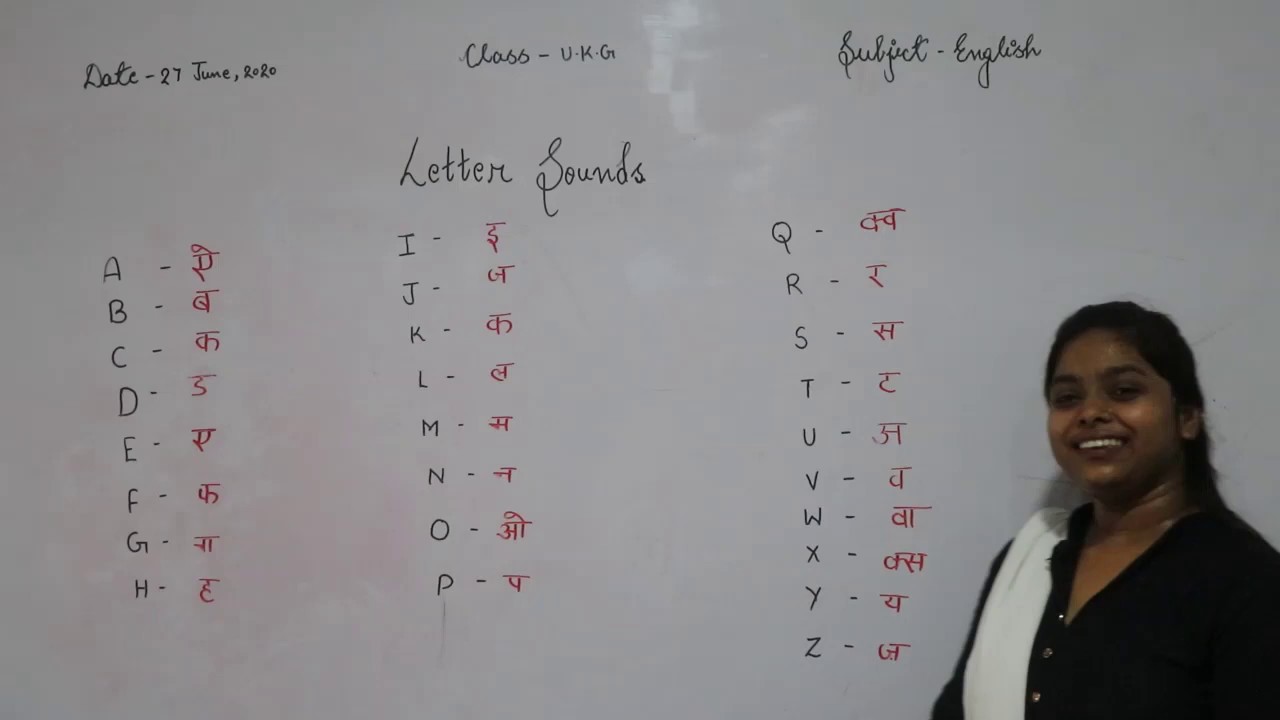 Date - 27 June, 2020
Class - U.K.G
Subject - English
Letter Sounds
A - ऐ
B - ब
C - क
D - ड
E - ए
F - फ
G - ग
H - ह
I - इ
J - ज
K - क
L - ल
M - म
N - न
O - ओ
P - प
Q - क्व
R - र
S - स
T - ट
U - अ
V - व
W - वा
X - क्स
Y - य
Z - ज़